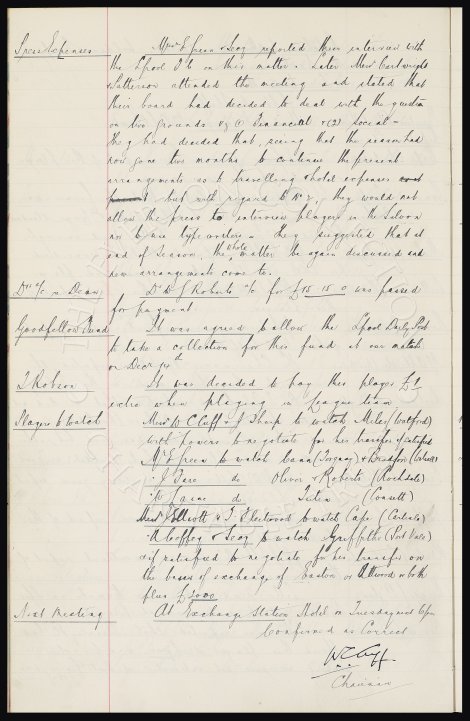 Press Expenses
Messrs E. Green & Secy reported their interview with
the L'pool F.C. on this matter. Later Messrs Cartwright
& Patterson attended the meeting and stated that
their board had decided to deal with the question
on two grounds (1) Financial & (2) social -
They had decided that, seeing that the season had
now gone two months to continue the present
arrangements as to travelling & hotel expenses
but with regard to No 2, they would not
allow the press to interview players in the Saloon
nor to use typewriters. They suggested that at
end of Season, the whole matter be again discussed and
new arrangements come to.
Dr W J Roberts a/c for £15 15 0 was passed
for payment.
Goodfellow Fund
It was agreed to allow the L'pool Daily Post
to take a collection for this fund at our match
on Decr
T Robson
It was decided to pay this player £1
extra when playing in League team
Players to Watch
Messrs W C Cuff & J Sharp to watch Miles (Watford)
with powers to negotiate for his transfer if satisfied
Mr E Green to watch Cann (Torquay) & Bradford (Walsall)
" J Fare do Oliver & Roberts (Rochdale)
do (Consett)
Messrs & T. Fleetwood to watch Cape (Carlisle)
& Secy to watch Griffiths (Port Vale)
& if satisfied to negotiate for his transfer on
the basis of exchange of Easton or Attwood or both
plus £2000
Next Meeting
At Exchange Station Hotel on Tuesday next 6pm
Confirmed as Correct
W C Cuff.
Chairman